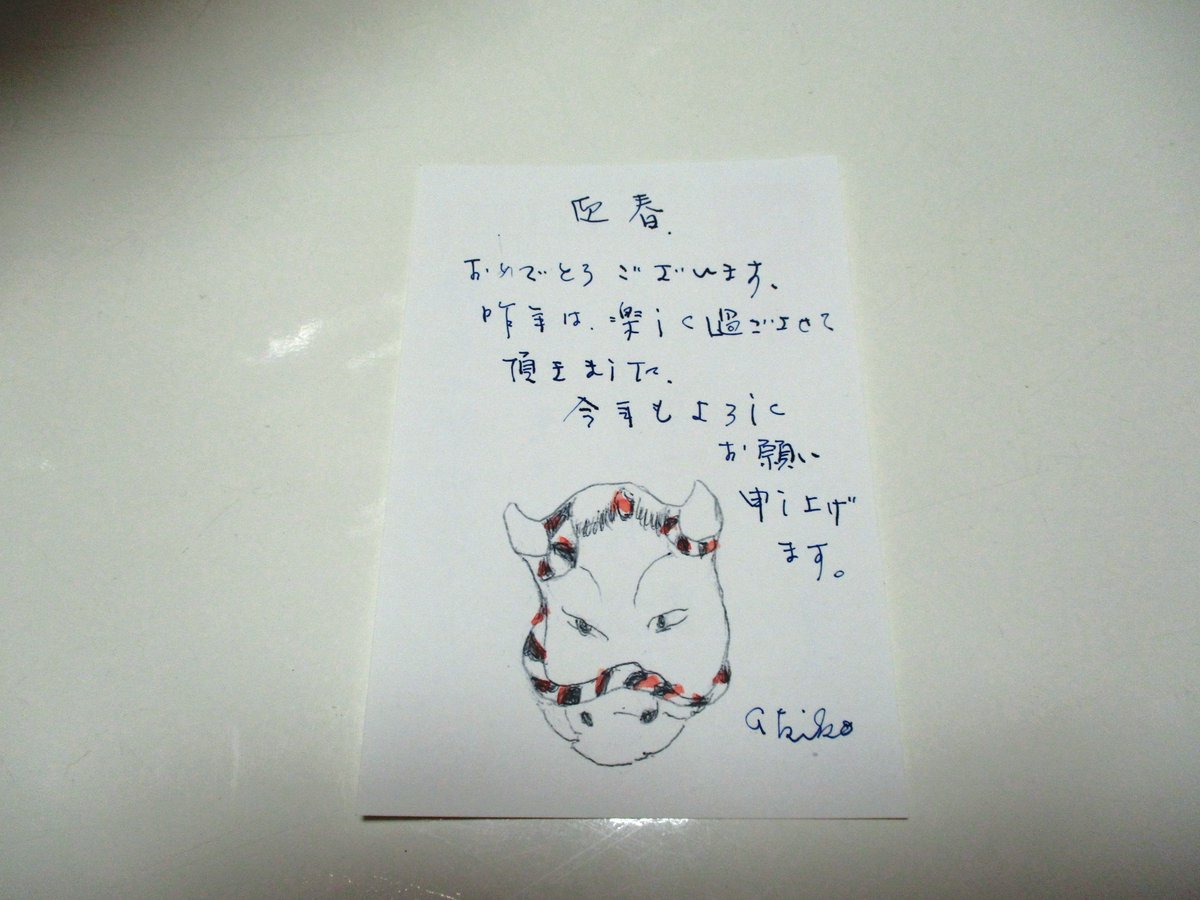 迎春.
おめでとうございます。
昨年は、楽しく過ごさせて
頂きました.
今年もよろしく
お願い
申し上げ
ます。
akiko